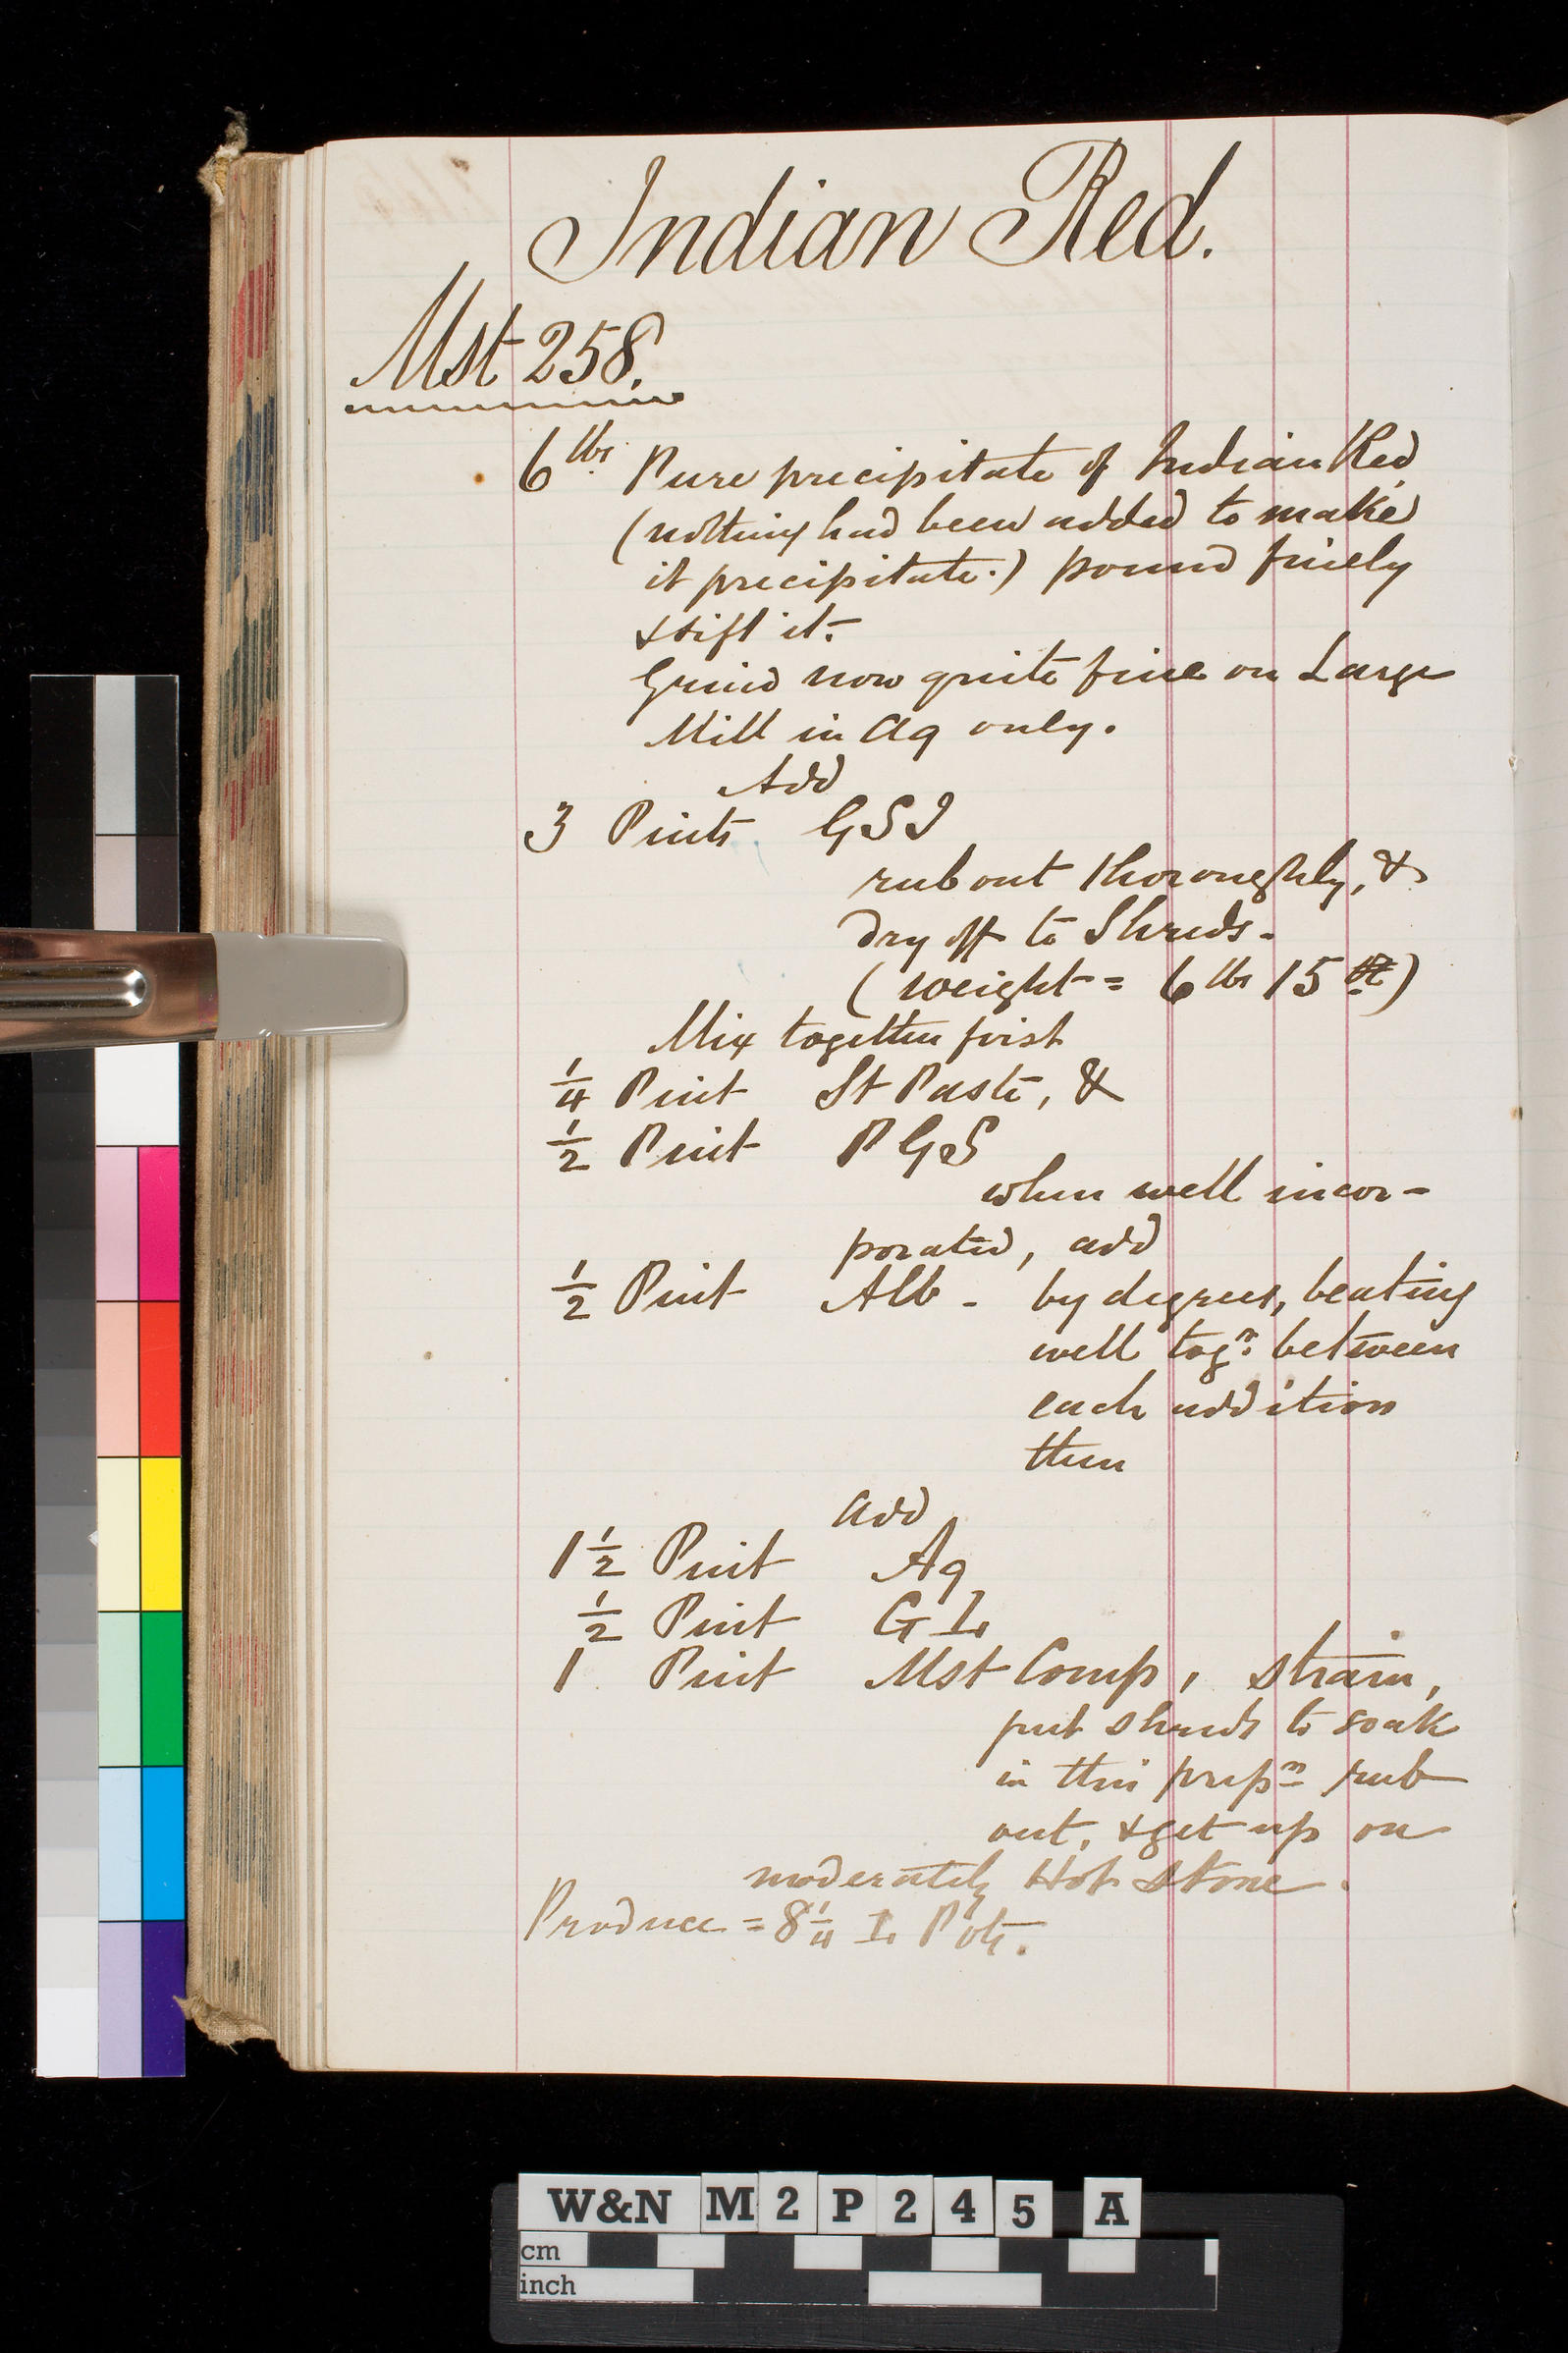 Indian Red.
Mst 258.
6 lbs. Pure precipitate of Indian Red
(nothing had been added to make
it precipitate.) pound finely
& sift it.
Grind now quite fine on Large
Mill in Aq only.
Add
3 Pints GSI
rub out thoroughly, &
dry off to Shreds.
(weight = 6 lbs 15
Mix together first
1/4 Pint St Paste, &
1/2 Pint P G S
when well incor-
porated, add
1/2 Pint Alb - by degrees, beating
well togr. between
each addition
then
add
1 1/2 Pint Aq
1/2 Pint G L
1 Pint Mst Comp, strain,
put shreds to soak
in this prepn rub
out, & get up on
moderately Hot Stone.
Produce = 8 1/4 L Pots.
W&N M2P245 A
cm
inch